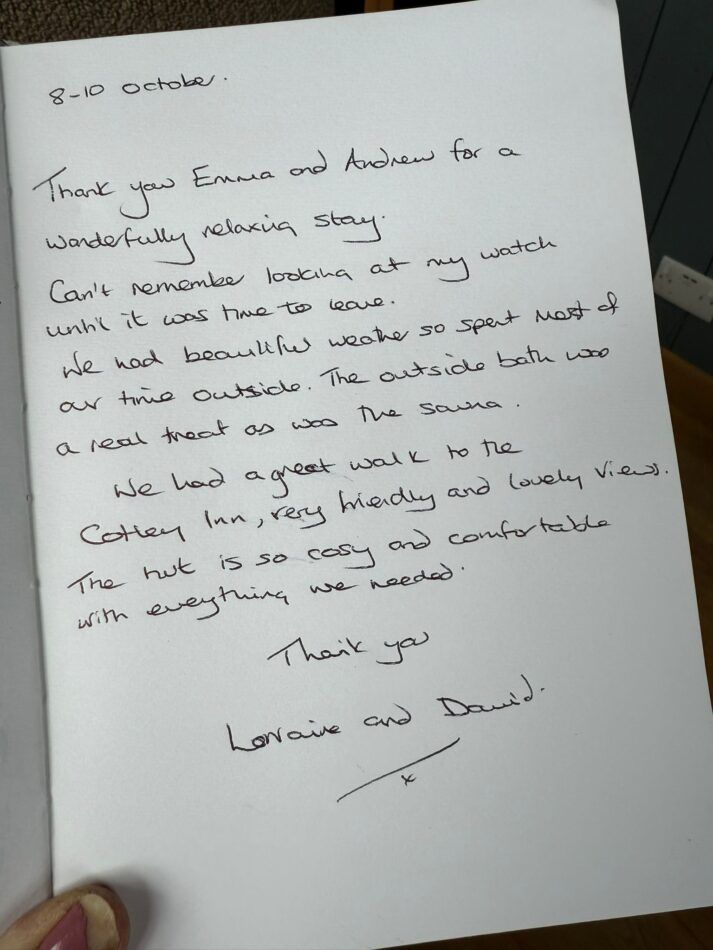 8-10 October.
Thank you Emma and Andrew for a
wonderfully relaxing stay.
Can't remember looking at my watch
until it was time to leave.
We had beautiful weather so spent most of
our time outside. The outside bath was
a real treat as was the sauna.
We had a great walk to the
Cotley Inn, very friendly and lovely views.
The hut is so cosy and comfortable
with everything we needed.
Thank you
Lorraine and David.
x